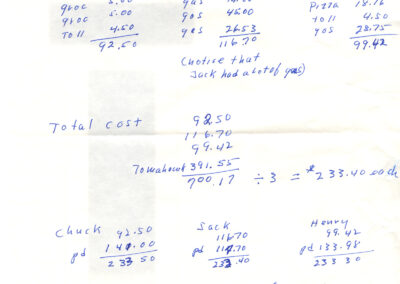 groc 5.00 gas
groc 5.00 gas 45.00 Pizza 18.76
Toll 4.50 gas 26.53 toll 4.50
92.50 116.70 gas 28.75
99.42
(Notise that
Jack had a lot of gas)
Total cost 92.50
116.70
99.42
Tomahawk 391.55
700.17 ÷ 3 = $233.40 each
Chuck 92.50 Jack Henry
pd 141.00 116.70 99.42
233 50 pd 116.70 pd 133.98
233.40 233 30